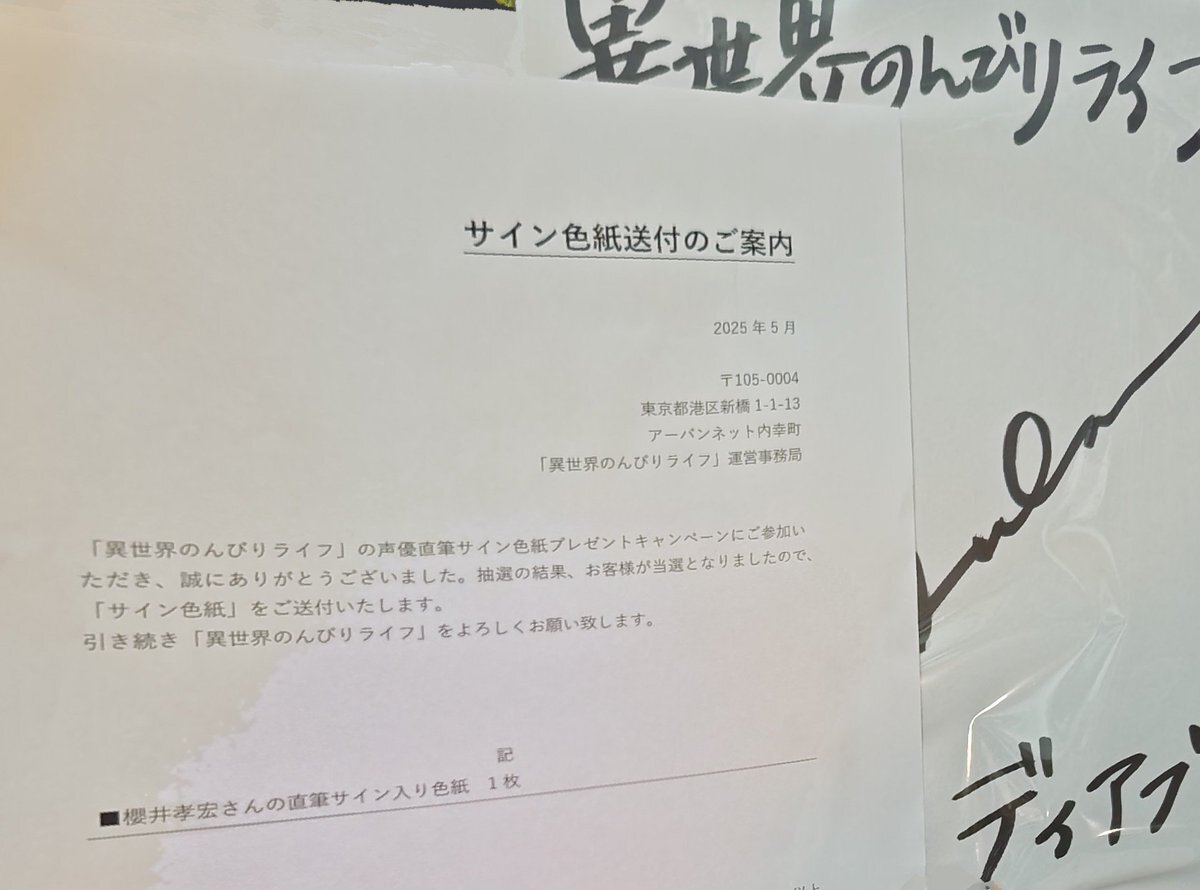 異世界のんびりライフ
サイン色紙送付のご案内
2025年5月
〒105-0004
東京都港区新橋1-1-13
アーバンネット内幸町
「異世界のんびりライフ」運営事務局
「異世界のんびりライフ」の声優直筆サイン色紙プレゼントキャンペーンにご参加い
ただき、誠にありがとうございました。抽選の結果、お客様が当選となりましたので、
「サイン色紙」をご送付いたします。
引き続き「異世界のんびりライフ」をよろしくお願い致します。
記
■櫻井孝宏さんの直筆サイン入り色紙 1枚
ディアブ